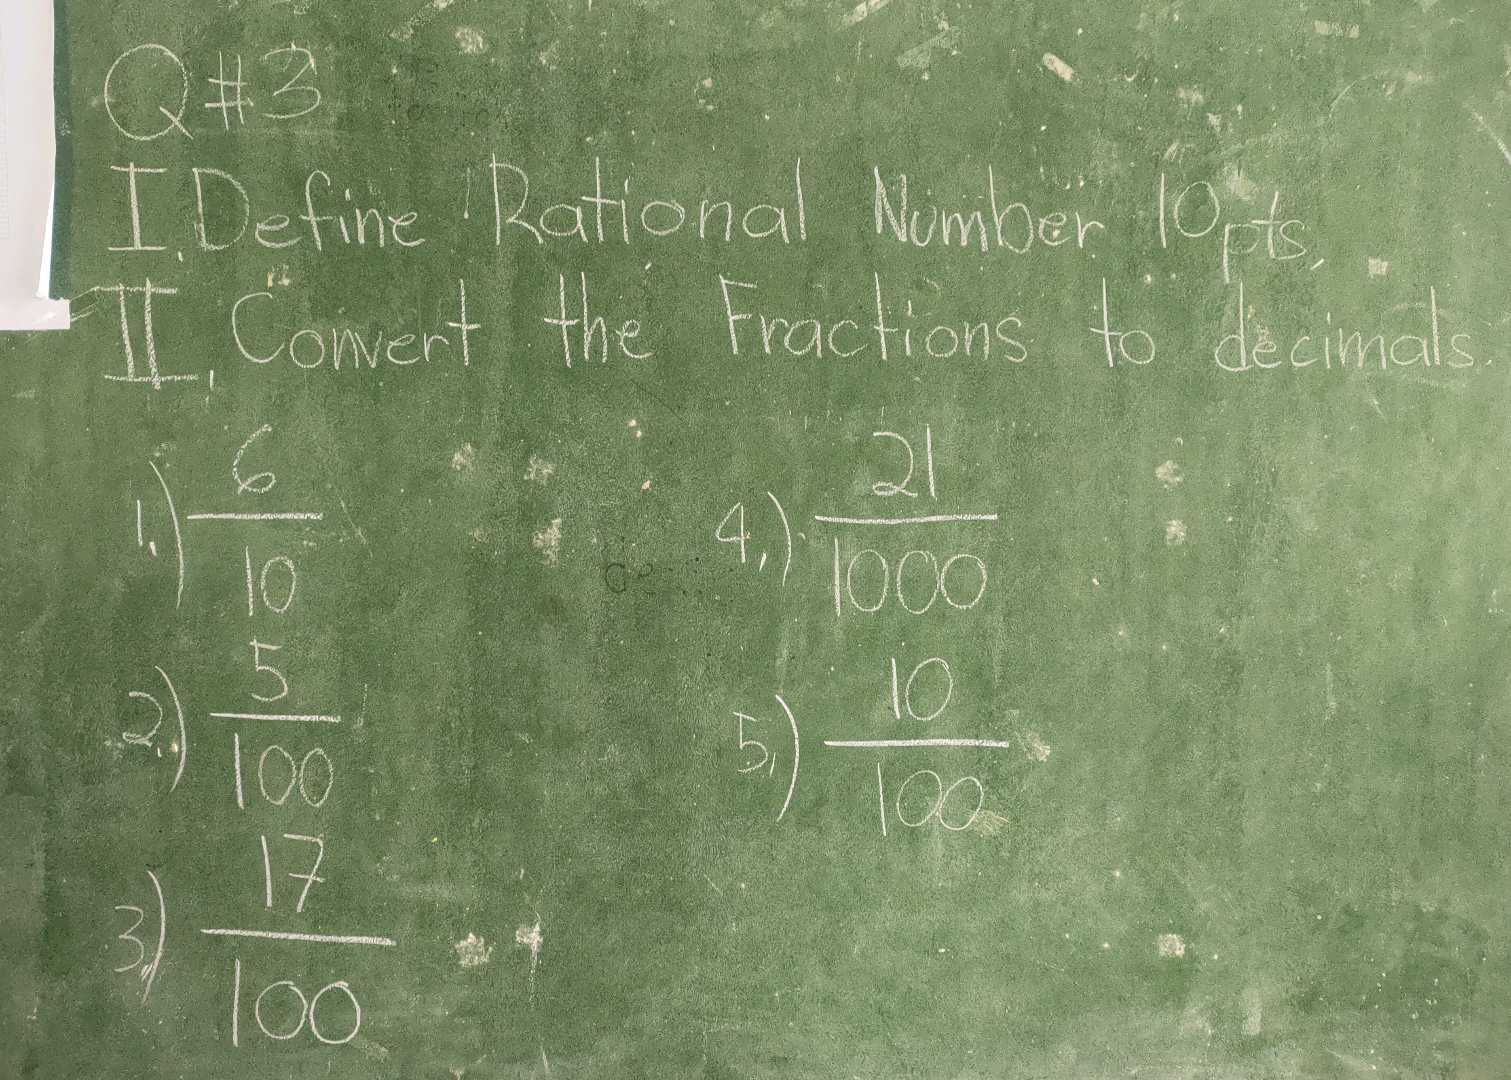 Q#3
I. Define Rational Number 10pts.
II. Convert the Fractions to decimals.
1.) 6/10
2.) 5/100
3.) 17/100
4.) 21/1000
5.) 10/100